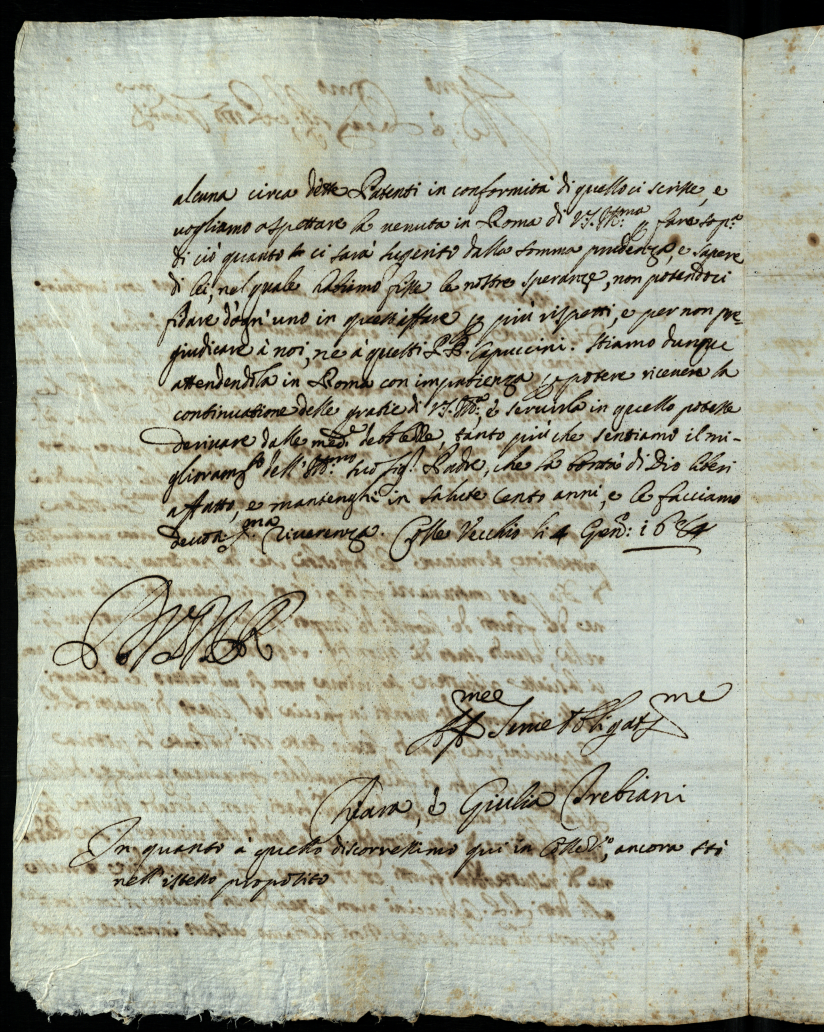 alcuna circa dette Patenti in conformità di quello ci scrisse, e
vogliamo aspettare la venuta in Roma di V.S. Ill.ma p fare sop.a
di ciò quanto ci sarà sugerito dalla somma prudenza, e sapere
di lei, nel quale habbimo fisse le nostre speranze, non potendoci
fidare d'ogn'uno in quest'affare p più rispetti, e per non pre=
giudicare à noi, ne à questi PP. Capuccini. Stiamo dunque
attendendola in Roma con impatienza p potere ricevere la
continuatione delle gratie di V.S. Ill.ma, è servirla in quello potesse
derivare dalle med.e debolezze, tanto più che sentiamo il mi-
glioram.to dell'Ill.mo suo Sig.r Padre, che la bontà di Dio liberi
affatto, e mantenghi in salute cento anni, e le facciamo
devotis.ma riverenza. Colle Vecchio li 4 Gen.o: 1684
D V S Ill R
Serve Obligat.me
Chiara, è Giulia Trebiani
In quanto à quello discorressimo qui in Colle V.o, ancora sti
nell'istesso proposito